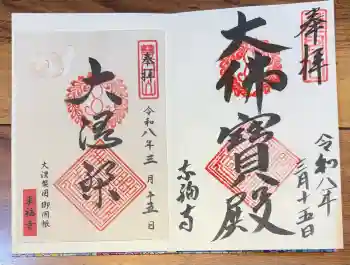 奉拝
大佛寳殿
令和八年
三月十五日
奉拝
大涅槃
令和八年三月十五日
大涅槃図御開帳
東福寺